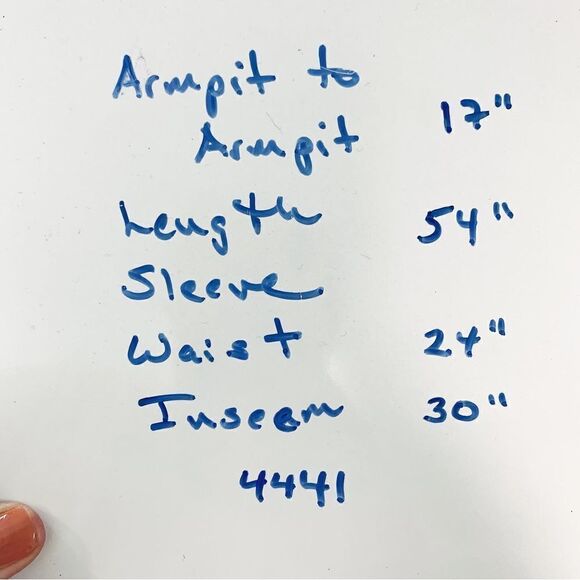 Armpit to
Armpit 17"
Length 54"
Sleeve
Waist 24"
Inseam 30"
4441